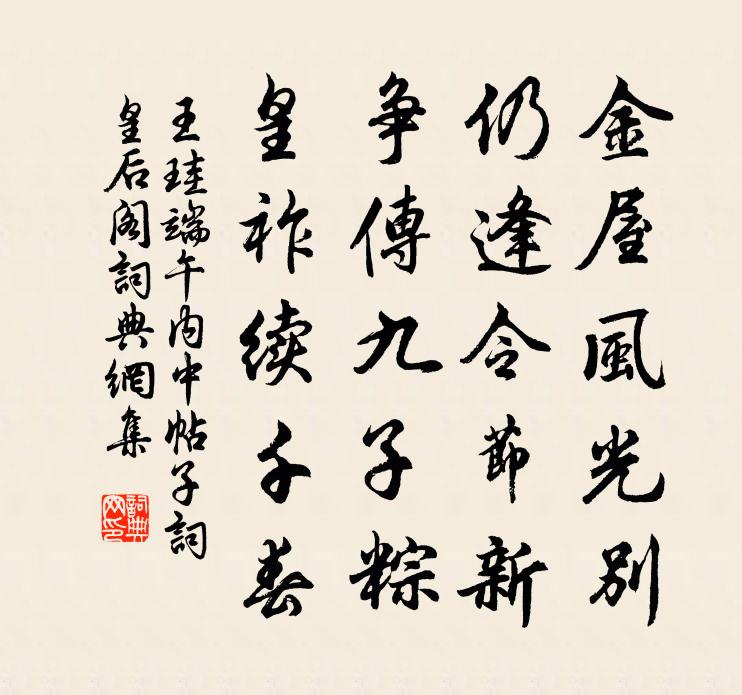 金屋風光別
仍逢令節新
争傳九子粽
皇祚续千春
王珪端午内中帖子詞
皇后阁詞典網集
詞典
网印